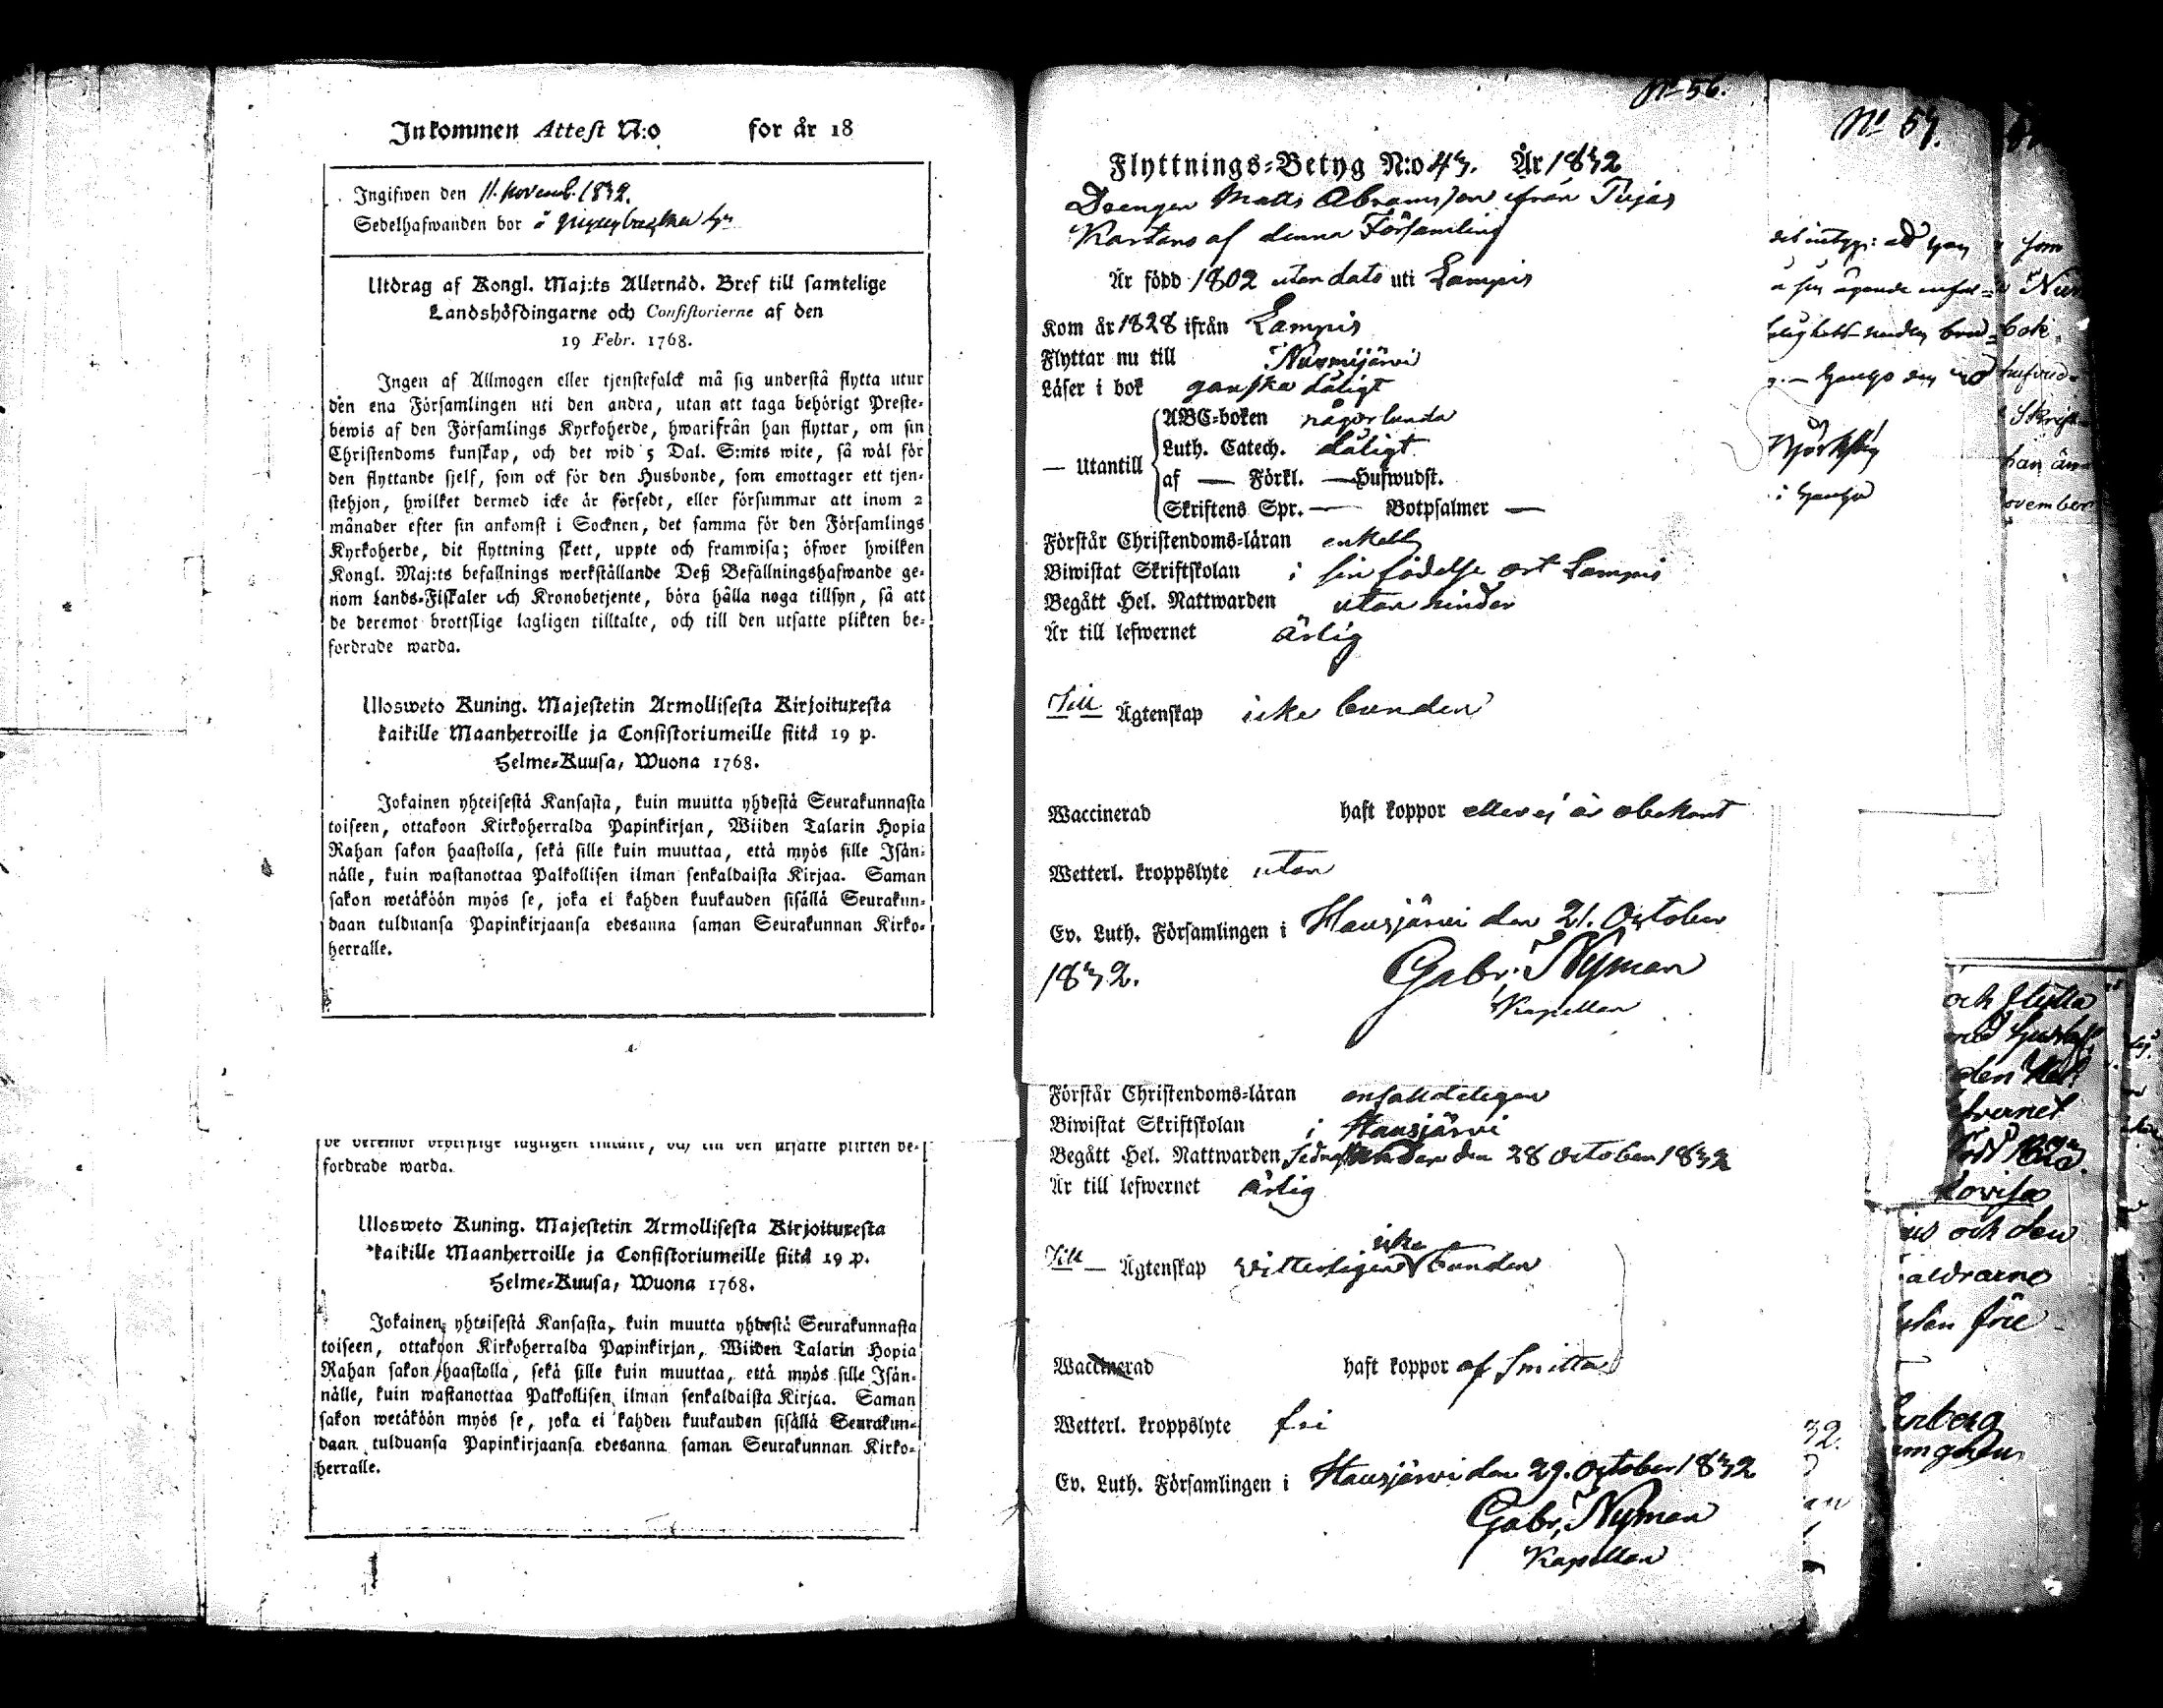 Inkommen Attest N:o for år 18
Ingifwen den 11. novemb. 1832.
Sedelhafwanden bor å
Utdrag af Kongl. Maj:ts Allernåd. Bref till samtelige
Landshöfdingarne och Consistorierne af den
19 Febr. 1768.
Ingen af Allmogen eller tjenstefolck må sig understå flytta utur
den ena Församlingen uti den andra, utan att taga behörigt Preste-
bewis af den Församlings Kyrkoherde, hwarifrån han flyttar, om sin
Christendoms kunskap, och det wid 5 Dal. S:mts wite, så wäl för
den flyttande sjelf, som ock för den Husbonde, som emottager ett tjen-
stehjon, hwilket dermed icke är försedt, eller försummar att inom 2
månader efter sin ankomst i Socknen, det samma för den Församlings
Kyrkoherde, dit flyttning skett, uppte och framwisa; öfwer hwilken
Kongl. Maj:ts befallnings werkställande Deß Befallningshafwande ge-
nom Lands-Fiskaler och Kronobetjente, böra hålla noga tillsyn, så att
de deremot brottslige lagligen tilltalte, och till den utsatte plikten be-
fordrade warda.
Ulosweto Kuning. Majestetin Armollisesta Kirjoituxesta
kaikille Maanherroille ja Consistoriumeille siitä 19 p.
Helme-Kuusa, Wuona 1768.
Jokainen yhteisestä Kansasta, kuin muutta yhdestä Seurakunnasta
toiseen, ottakoon Kirkoherralda Papinkirjan, Wiiden Talarin Hopia
Rahan sakon haastolla, sekä sille kuin muuttaa, että myös sille Isän-
nälle, kuin wastanottaa Palkollisen ilman senkaldaista Kirjaa. Saman
sakon wetäköön myös se, joka ei kahden kuukauden sisällä Seurakun-
daan tulduansa Papinkirjaansa edesanna saman Seurakunnan Kirko-
herralle.
de deremot brottslige lagligen tilltalte, och till den utsatte plikten be-
fordrade warda.
Ulosweto Kuning. Majestetin Armollisesta Kirjoituxesta
kaikille Maanherroille ja Consistoriumeille siitä 19 p.
Helme-Kuusa, Wuona 1768.
Jokainen yhteisestä Kansasta, kuin muutta yhdestä Seurakunnasta
toiseen, ottakoon Kirkoherralda Papinkirjan, Wiiden Talarin Hopia
Rahan sakon haastolla, sekä sille kuin muuttaa, että myös sille Isän-
nälle, kuin wastanottaa Palkollisen ilman senkaldaista Kirjaa. Saman
sakon wetäköön myös se, joka ei kahden kuukauden sisällä Seurakun-
daan tulduansa Papinkirjaansa edesanna saman Seurakunnan Kirko-
herralle.
No 56.
Flyttnings-Betyg N:o 43. År 1832
Drengen Matts Abramsson ifrån Tujas
Kartano af denna Församling
Är född 1802 utan dato uti Lampis
Kom år 1828 ifrån Lampis
Flyttar nu till Nurmijärvi
Läser i bok ganska dåligt
ABC-boken någorlunda
Luth. Catech. dåligt
— Utantill
af — Förkl. — Hufwudst.
Skriftens Spr. — Botpsalmer —
Förstår Christendoms-läran enkelt
Biwistat Skriftskolan i sin födelse ort Lampis
Begått Hel. Nattwarden utan hinder
Är till lefwernet ärlig
Till Ägtenskap icke bunden
Waccinerad haft koppor eller ej är obekant
Wetterl. kroppslyte utan
Ev. Luth. Församlingen i Hausjärvi den 21. October
1832. Gabr. Nyman
Kapellan
Förstår Christendoms-läran enfalldeligen
Biwistat Skriftskolan i Hausjärvi
Begått Hel. Nattwarden den 28 October 1832
Är till lefwernet ärlig
icke
Till — Ägtenskap vitterligen bunden
Waccinerad haft koppor af Smitta
Wetterl. kroppslyte fri
Ev. Luth. Församlingen i Hausjärvi den 29. October 1832
Gabr. Nyman
Kapellan
No 57.
som
bok
han än
ovember
och flytta
den
Lovisa
och den
32.